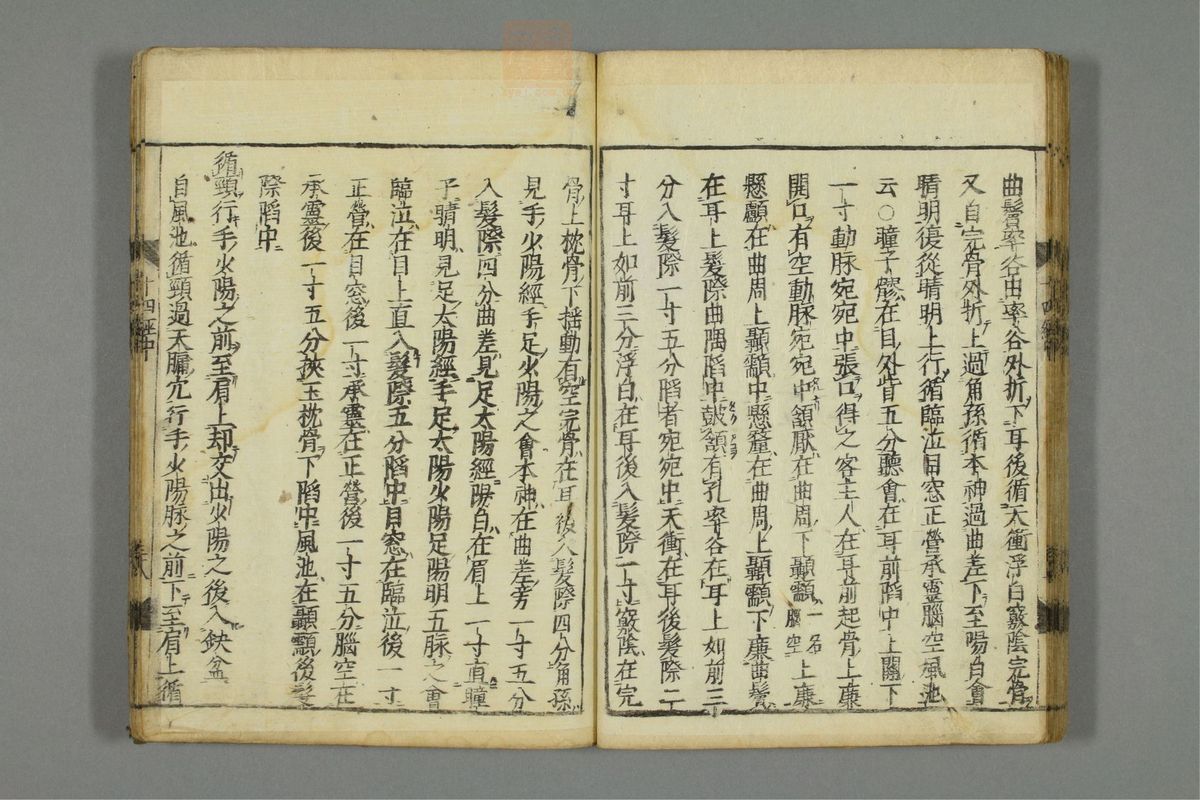 曲鬢率谷由率谷外折下耳後循天衝浮白竅陰完骨
又自完骨外折上過角孫循本神過曲差下至陽白會
睛明復從睛明上行循臨泣目窓正營承靈腦空風池
云○瞳子髎在目外眥五分聽會在耳前陷中上關下
一寸動脉宛宛中張口得之客主人在耳前起骨上廉
開口有空動脉宛宛中頷厭在曲周下顳顬一名腦空上廉
懸顱在曲周上顳顬中懸釐在曲周上顳顬下廉曲鬢
在耳上髮際曲隅陷中鼓頷有孔率谷在耳上如前三
分入髮際一寸五分陷者宛宛中天衝在耳後髮際二
寸耳上如前三分浮白在耳後入髮際一寸竅陰在完
骨上枕骨下搖動有空完骨在耳後入髮際四分角孫
見手少陽經手足少陽之會本神在曲差旁一寸五分
入髮際四分曲差見足太陽經陽白在眉上一寸直瞳
子睛明見足太陽經手足太陽少陽足陽明五脉之會
臨泣在目上直入髮際五分陷中目窓在臨泣後一寸
正營在目窓後一寸承靈在正營後一寸五分腦空在
承靈後一寸五分挾玉枕骨下陷中風池在顳顬後髮
際陷中
循頸行手少陽之前至肩上却交出少陽之後入缺盆
自風池循頸過天牖穴行手少陽脉之前下至肩上循
十四經中